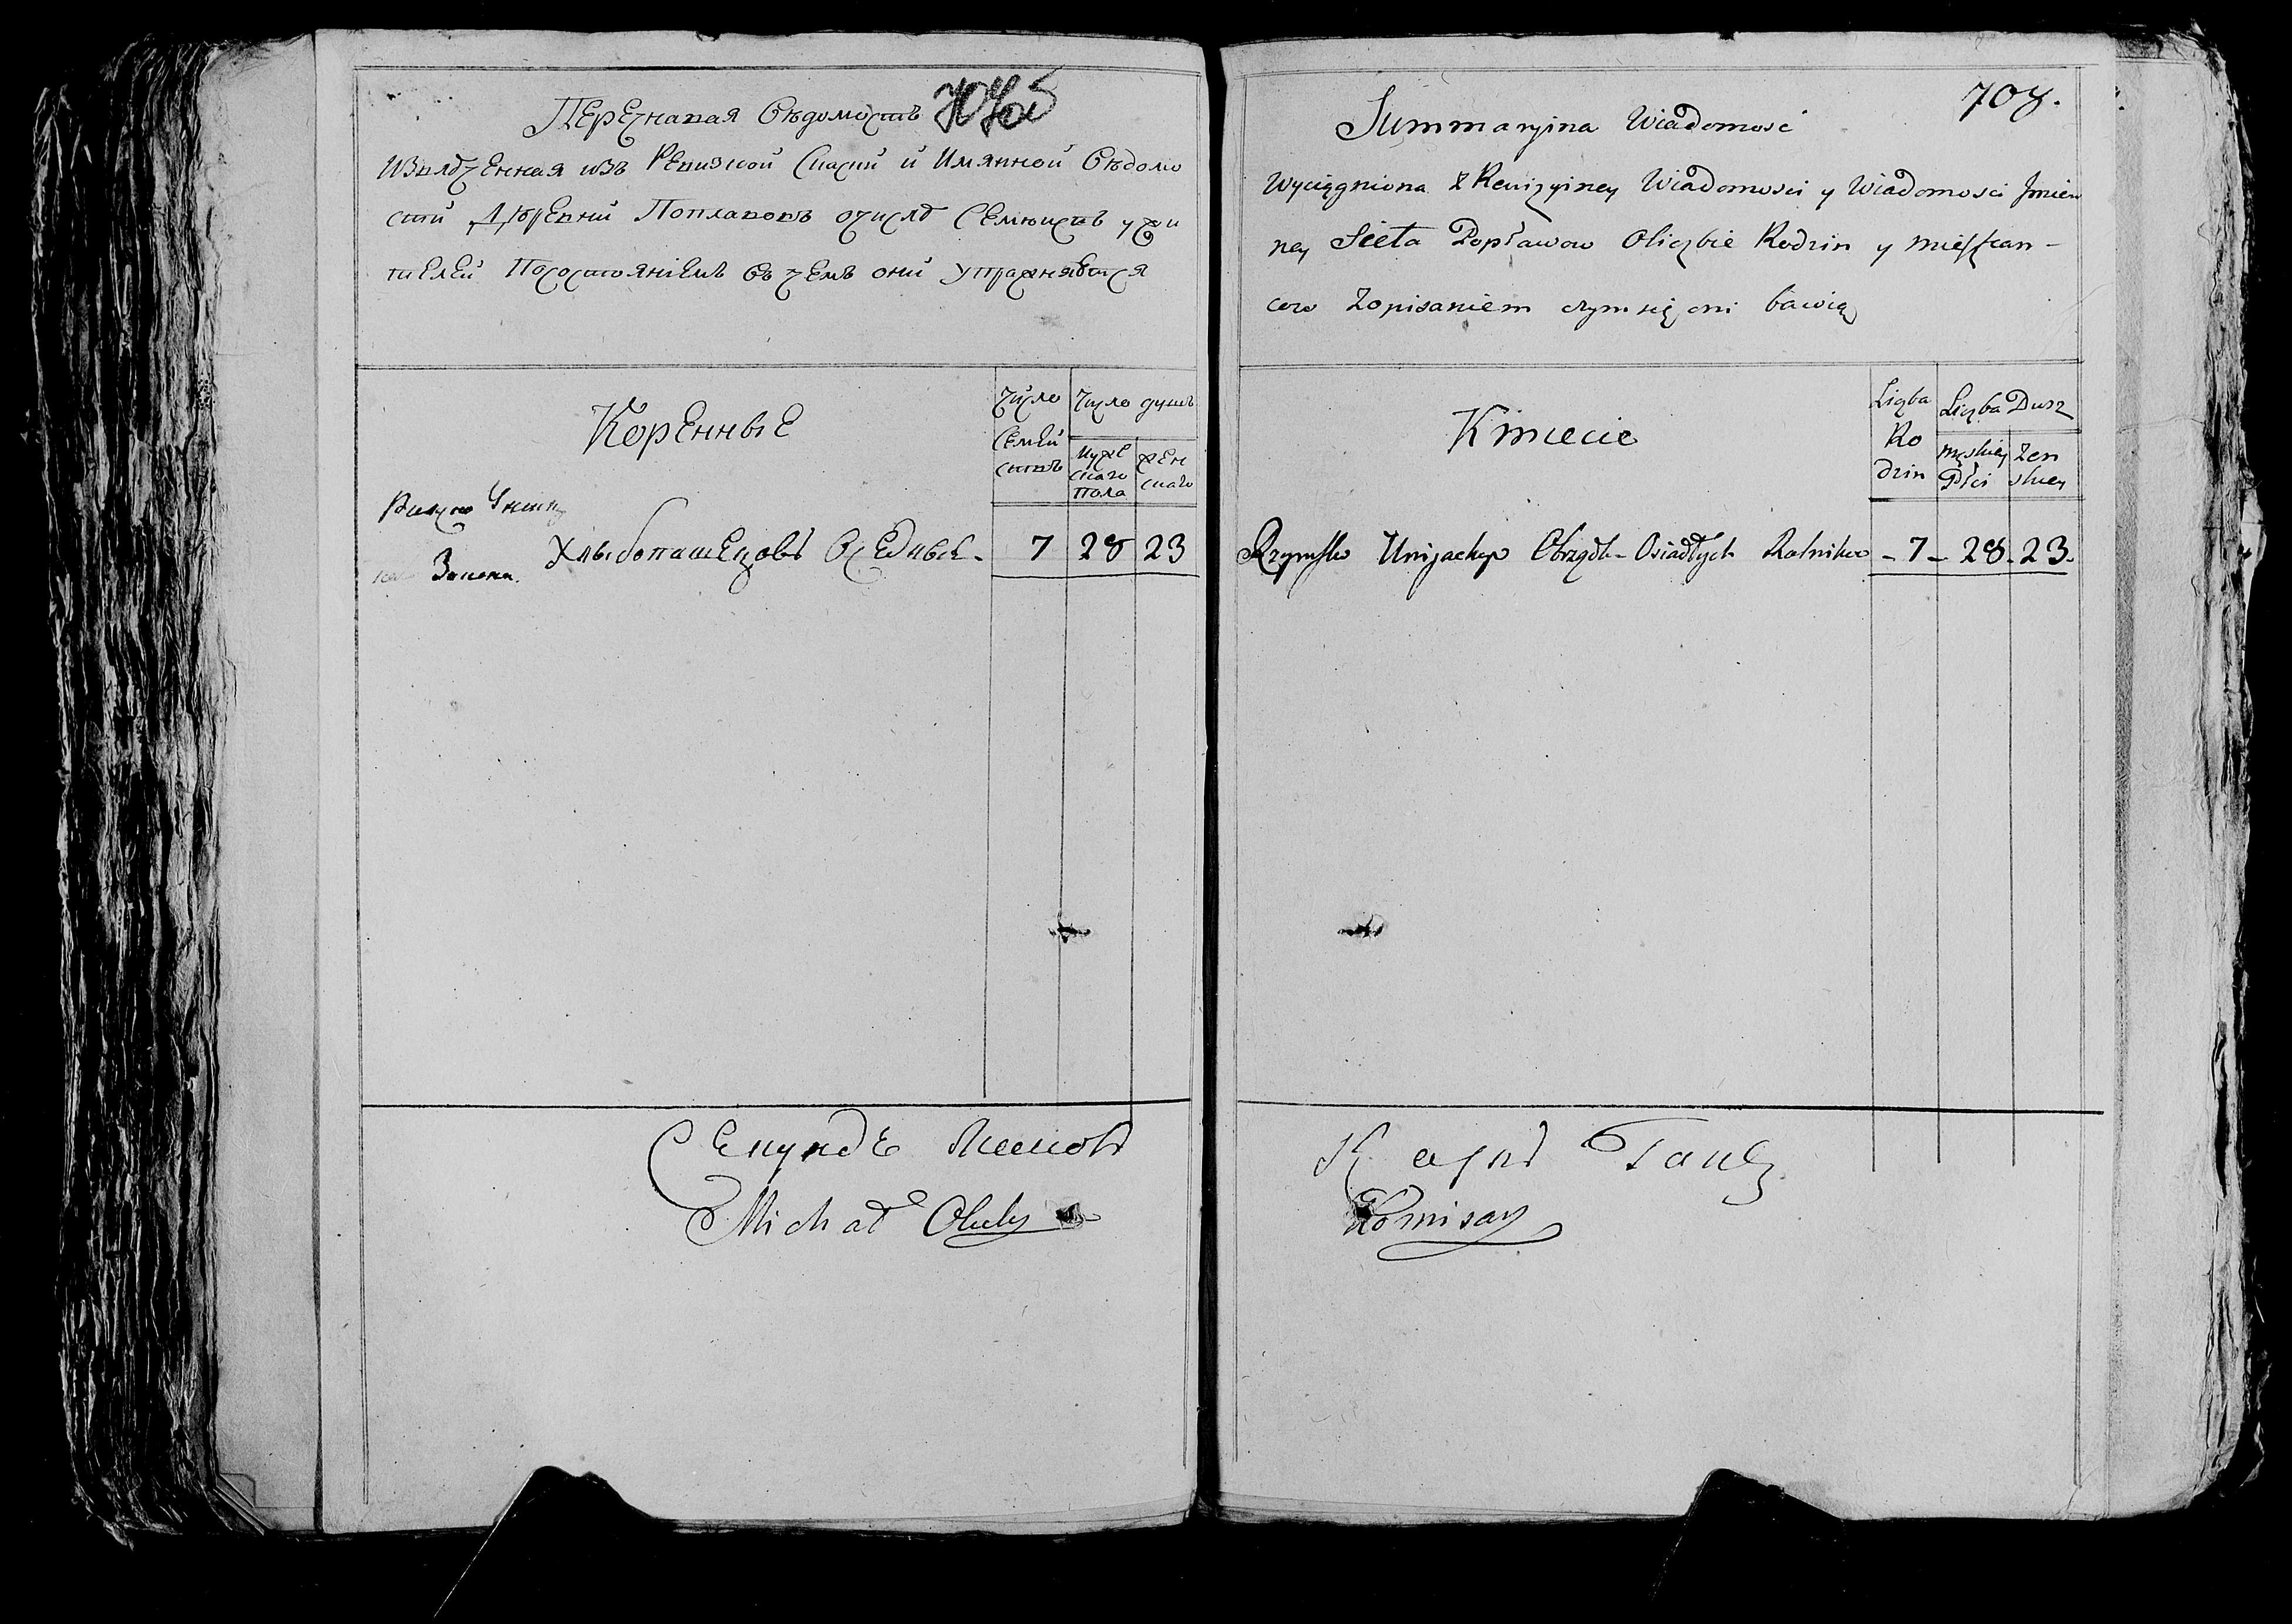 Перечнавая Вѣдомость
Извлеченная изъ Ревизкой Скаски и Имянной Вѣдомо
сти Деревни Поплавовъ очислѣ Семюиствъ ужи
телей Посостояніемъ въ чемъ они Упражняются
Коренные
Число Семей ствъ
Число душъ
Муже скаго пола
жен скаго
Римско Унит
Закона. Хлыбопашецовъ Оседлые - 7 28 23
Michał
708.
Summaryina Wiadomosć
Wyciągniona z Rewizyiney Wiadomosci y Wiadomosci Jmien
ney Sieła Popławow Oliczbie Rodzin y mieszkan-
cow Zopisaniem czym się oni bawią
Kmiecie
Liczba Ro dzin
Liczba Dusz
męskiey Płci
Zen skiey
Rzymsko Unijackego Obrządk- Osiadłych Rolnikow - 7 - 28 - 23.
Komisarz